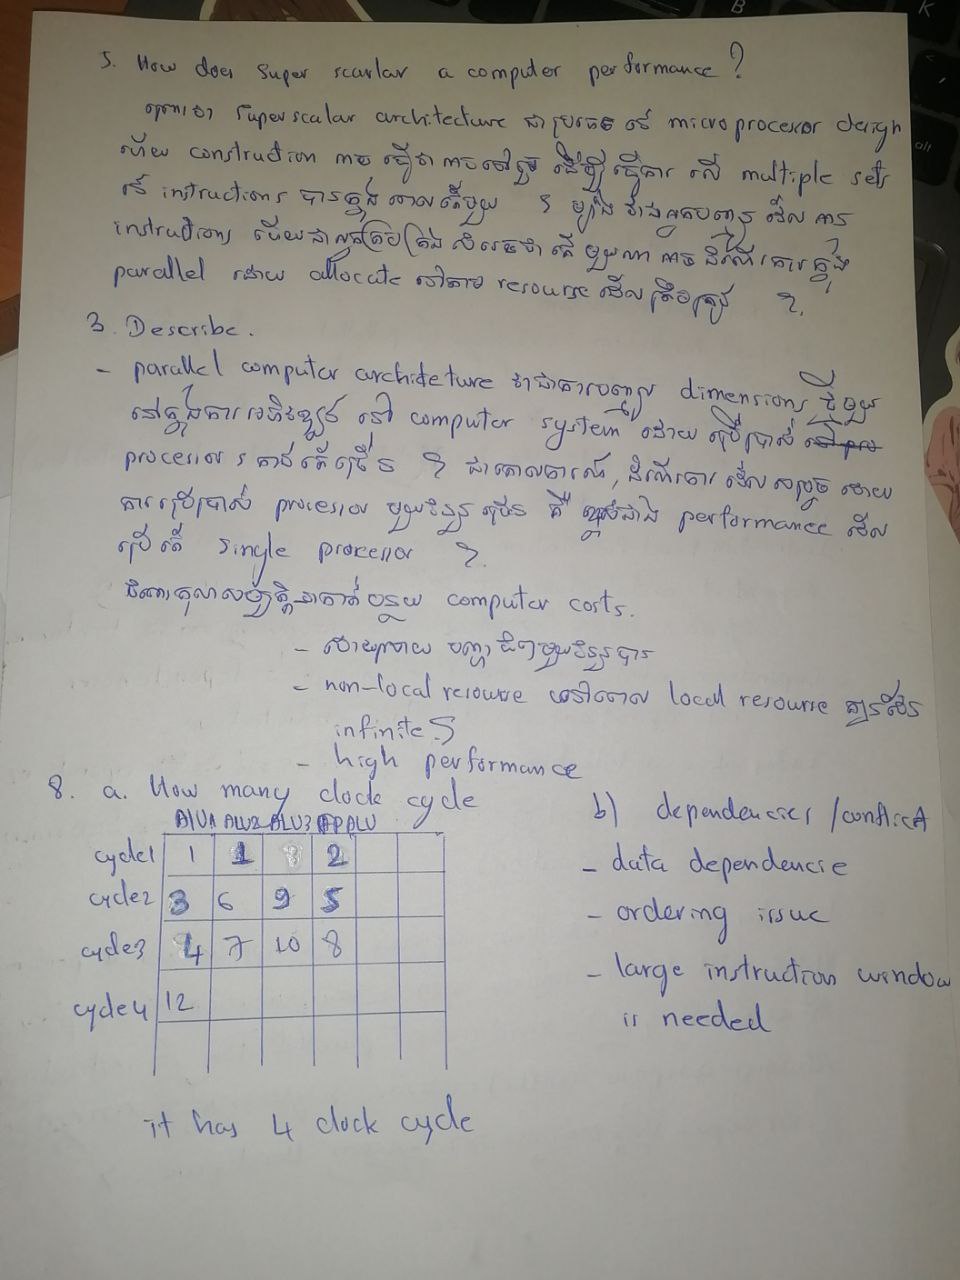 5. How does Super scarlar a computer performance?
ព្រោះថា Superscalar architecture ជាប្រភេទនៃ microprocessor design
ហើយ construction អាចធ្វើ ដើម្បីធ្វើការលើ multiple sets
នៃ instructions បានក្នុងពេលតែមួយ ។
instructions ហើយជាអ្នកគ្រប់គ្រង តើមួយណាអាចដំណើរការក្នុង
parallel ដោយ allocate ទៅតាម resource ដែលត្រឹមត្រូវ ។
3. Describe.
- parallel computer architeture វាជាការបញ្ចូល dimensions ថ្មីមួយ
នៅក្នុងការអភិវឌ្ឍន៍ នៅ computer system ដោយប្រើប្រាស់
processors កាន់តែច្រើន ។ ជាគោលការណ៍, ដំណើរការដែលសម្រេចដោយ
ការប្រើប្រាស់ processor មួយចំនួនច្រើន គឺខ្ពស់ជាង performance ដែល
ប្រើតែ single processor ។
computer costs.
- ដោះស្រាយបញ្ហាធំៗមួយចំនួនបាន
- non-local resource នៅពេល local resourse គ្មានដែន
infinite ។
- high performance
8. a. How many clock cycle
ALU1 ALU2 ALU3 FPALU
cycle1 1 1 2
cycle2 3 6 9 5
cycle3 4 7 10 8
cycle4 12
it has 4 clock cycle
b) dependencies / conflict
- data dependencie
- ordering issue
- large instruction window
is needed